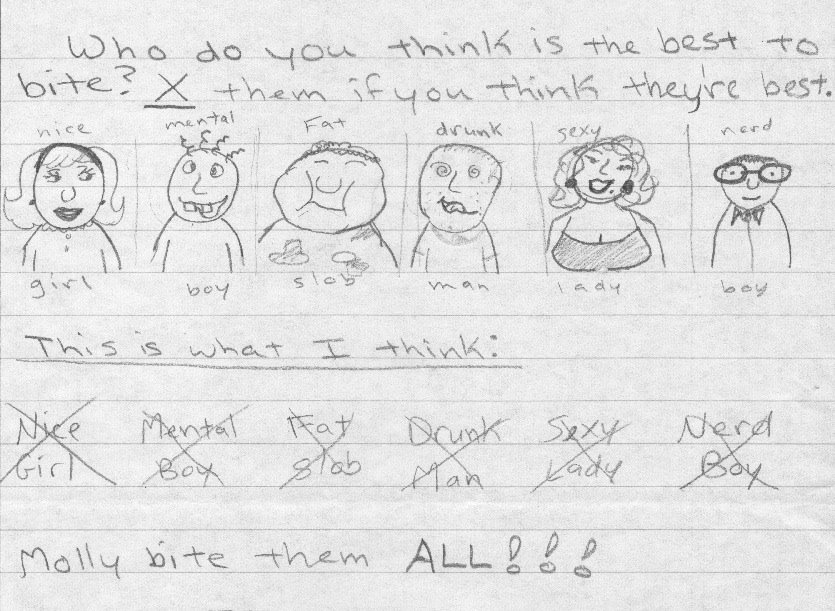 Who do you think is the best to
bite? X them if you think they're best.
nice mental Fat drunk sexy nerd
girl boy slob man lady boy
This is what I think:
Nice Mental Fat Drunk Sexy Nerd
Girl Boy Slob Man Lady Boy
Molly bite them ALL!!!